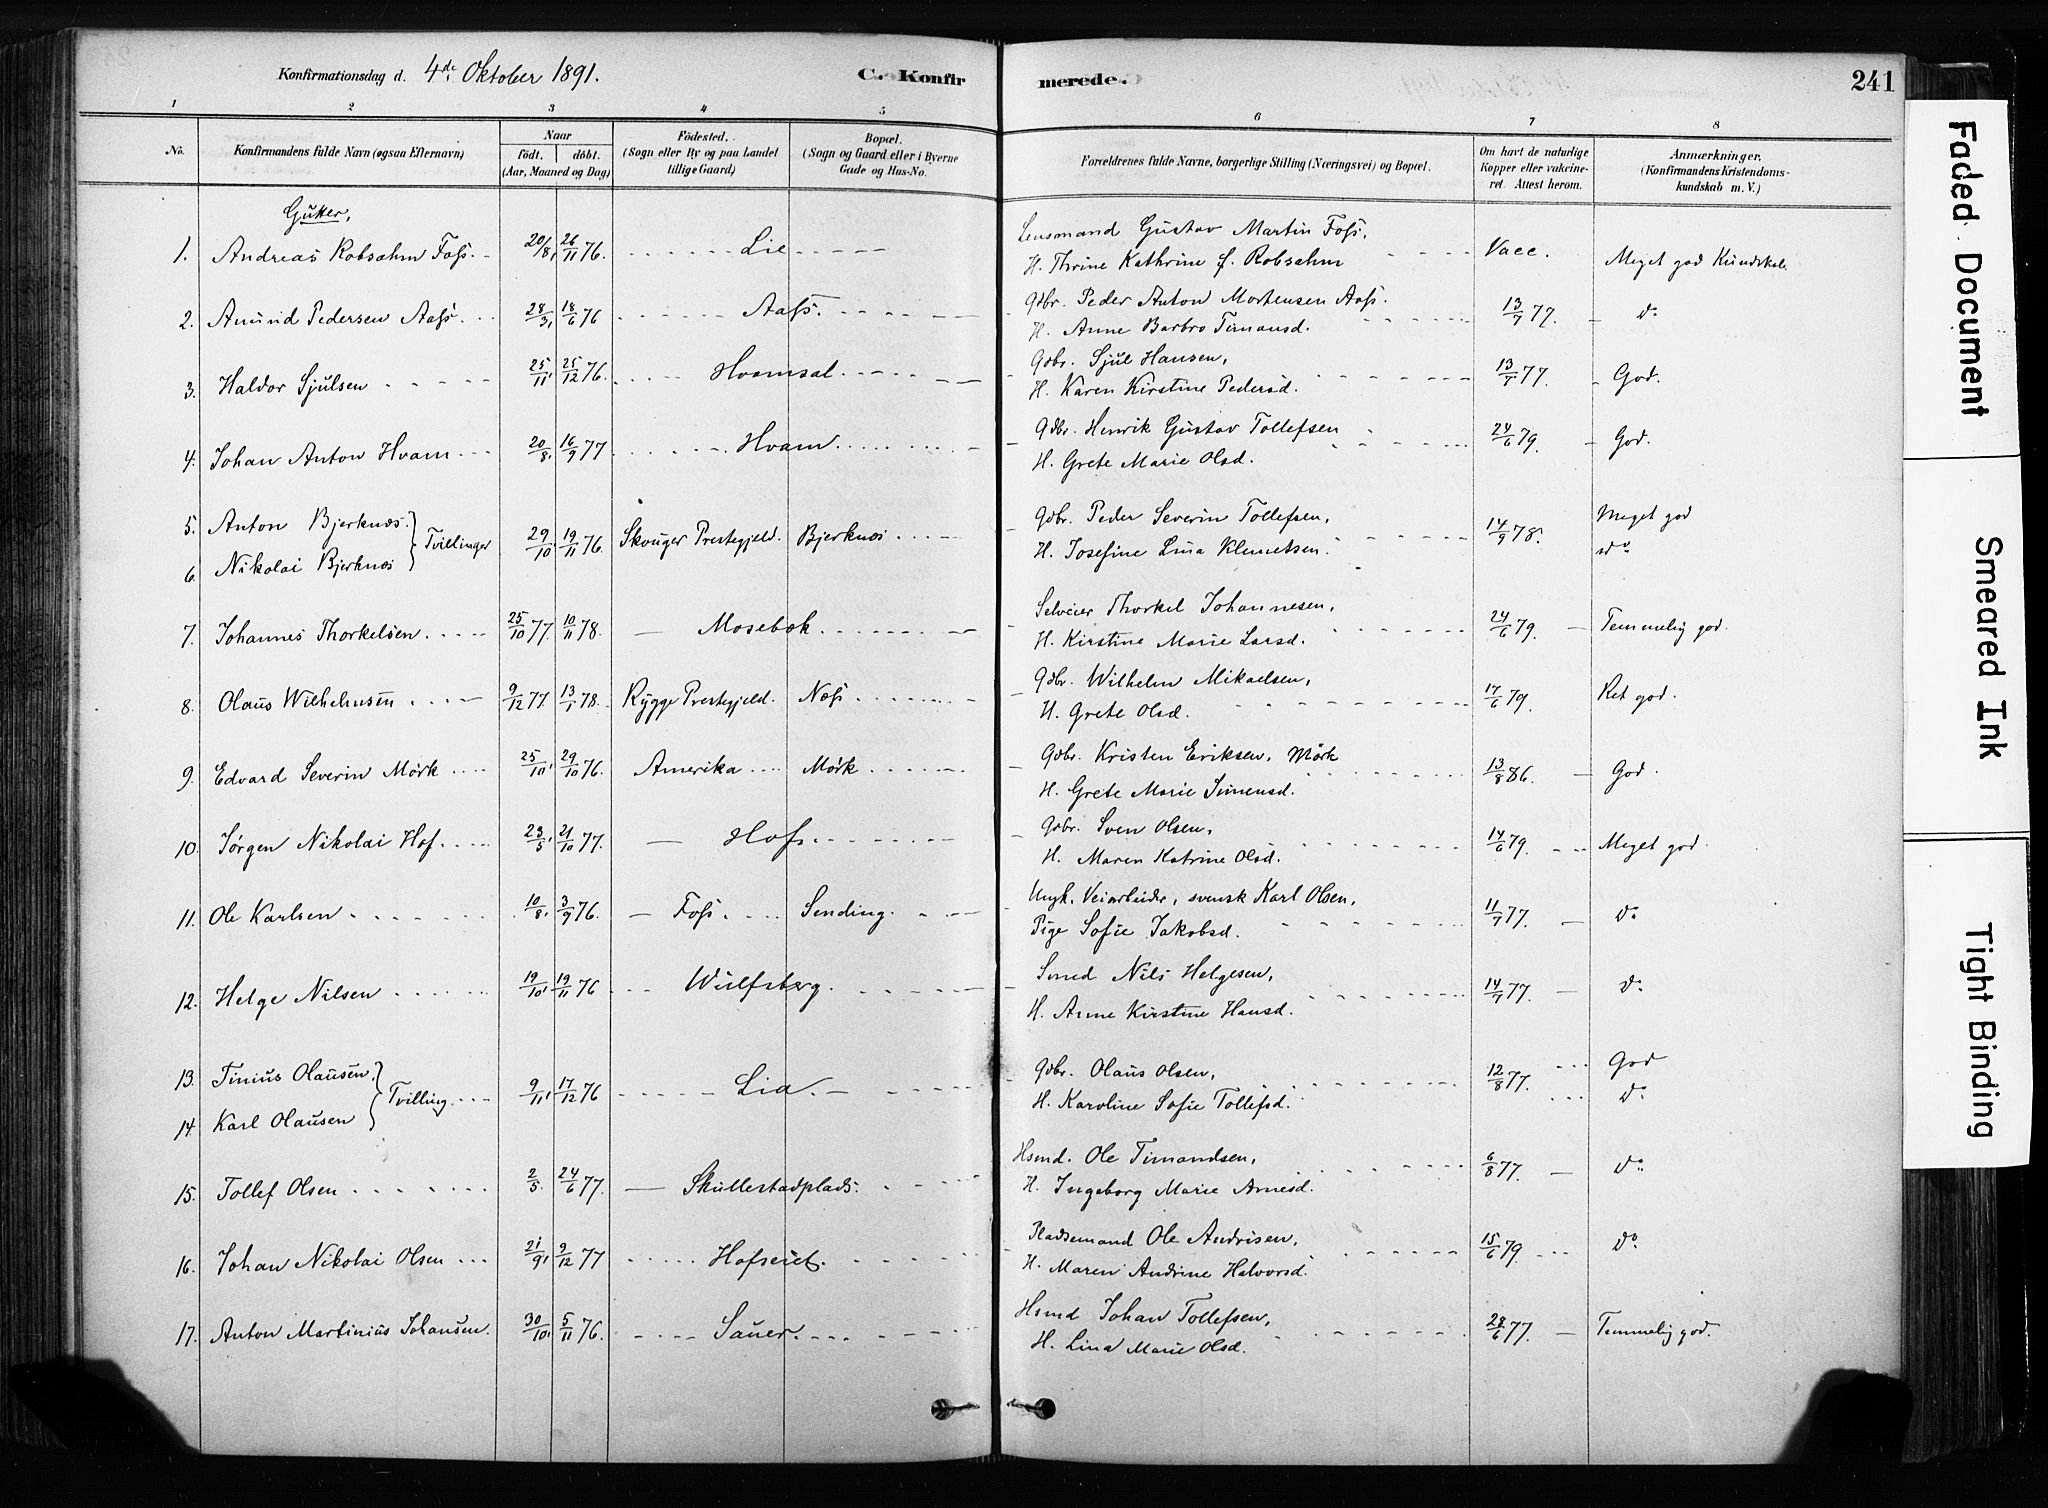 Konfirmationsdag d. 4de Oktober 1891. C. Konfirmerede. 241
1 2 3 4 5 6 7 8
No. Konfirmandens fulde Navn (ogsaa Efternavn) Naar født. døbt. (Aar, Maaned og Dag) Fødested. (Sogn eller By og paa Landet tillige Gaard) Bopæl. (Sogn og Gaard eller i Byerne Gade og Hus-No. Forældrenes fulde Navne, borgerlige Stilling (Næringsvei) og Bopæl. Om havt de naturlige Kopper eller vakcineret. Attest herom. Anmærkninger. (Konfirmandens Kristendomskundskab m. V.)
Gutter,
1. Andreas Robsahm Foss. 20/8, 26/11 76. Lie Lensmand Gustav Martin Foss. Vacc. Meget god Kundskab
H. Thrine Kathrine f. Robsahm
2. Amund Pedersen Aass. 28/3, 18/6 76 Aass. Gdbr. Peder Anton Mortensen Aass. 13/7 77. do
H. Anne Barbro Timansd.
3. Haldor Sjulsen 25/11, 25/12 76. Hvamsal Gdbr. Sjul Hansen, 13/7 77. God.
H. Karen Kirstine Pedersd.
4. Johan Anton Hvam 20/8, 16/9 77 Hvam Gdbr. Henrik Gustav Tollefsen 24/6 79. God.
H. Grete Marie Olsd.
5. Anton Bjerknes. Tvillinger 29/10, 19/11 76. Skouger Prestegjeld. Bjerknes Gdbr. Peder Severin Tollefsen, 14/9 78. Meget god
6. Nikolai Bjerknes H. Josefine Lina Klemetsen. do
7. Johannes Thorkelsen. 25/10 77. 10/11 78. Mosebæk Selveier Thorkel Johannesen, 24/6 79. Temmelig god.
H. Kirstine Marie Larsd.
8. Olaus Wilhelmsen 9/12 77. 13/1 78. Rygge Prestegjeld. Næss Gdbr. Wilhelm Mikaelsen, 17/6 79. Ret god.
H. Grete Olsd.
9. Edvard Severin Mörk 25/10, 29/10 76. Amerika Mörk Gdbr. Kristen Eriksen, Mörk 13/8 86. God.
H. Grete Marie Simensd.
10. Jørgen Nikolai Hof. 23/5, 21/10 77. Hof Gdbr. Sven Olsen, 14/6 79. Meget god.
H. Maren Katrine Olsd.
11. Ole Karlsen 10/8, 3/9 76. Foss. Sending. Ungk. Veiarbeider, svensk Karl Olsen, 11/7 77. do
Pige Sofie Jakobsd.
12. Helge Nilsen 19/10, 19/11 76 Wulfsberg. Smed Nils Helgesen, 14/7 77. do
H. Anne Kirstine Hansd.
13. Tinius Olausen, Tvilling. 9/11, 17/12 76 Lia. Gdbr. Olaus Olsen, 12/8 77. God
14. Karl Olausen H. Karoline Sofie Tollefsd. do
15. Tollef Olsen 2/5. 24/6 77. Skullestadplads. Hsmd. Ole Timandsen, 6/8 77. do
H. Ingeborg Marie Arnesd.
16. Johan Nikolai Olsen 21/9, 9/12 77 Hofseiet. Pladsemand Ole Andrisen, 15/6 79 do
H. Maren Andrine Halvorsd.
17. Anton Martinius Johansen. 30/10, 5/11 76. Sauer. Hsmd Johan Tollefsen, 28/6 77. Temmelig god.
H. Lina Marie Olsd.
Faded Document
Smeared Ink
Tight Binding